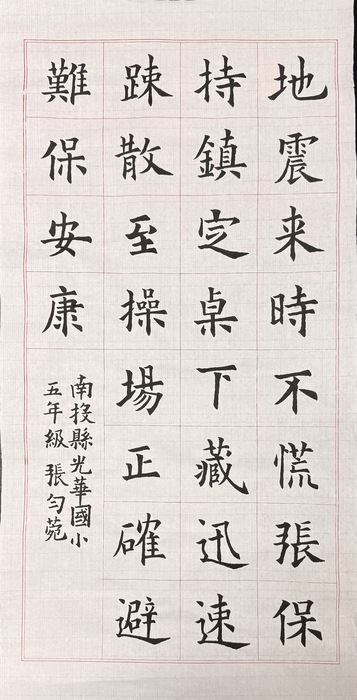 地震来時不慌張保
持鎮定桌下藏迅速
踈散至操場正確避
難保安康
南投縣光華國小
五年級 張勻菀